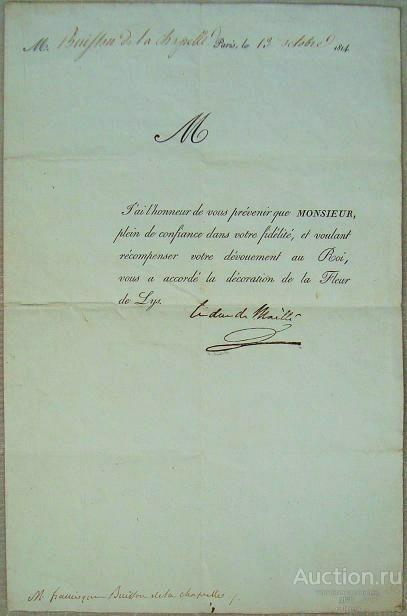 M. Buisson de la Chapelle Paris, le 13 octobre 1814
M
J'ai l'honneur de vous prévenir que MONSIEUR,
plein de confiance dans votre fidélité, et voulant
récompenser votre dévouement au Roi,
vous a accordé la décoration de la Fleur
de Lys.
le duc de Maillé
M. francisque Buisson de la chapelle
Auction.ru